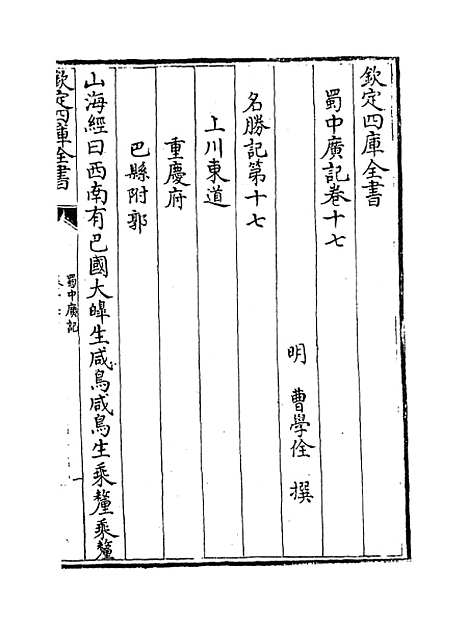 欽定四庫全書
蜀中廣記卷十七
明 曹學佺 撰
名勝記第十七
上川東道
重慶府
巴縣附郭
山海經曰西南有巴國大皡生咸鳥咸鳥生乘釐乘釐
欽定四庫全書
蜀中廣記